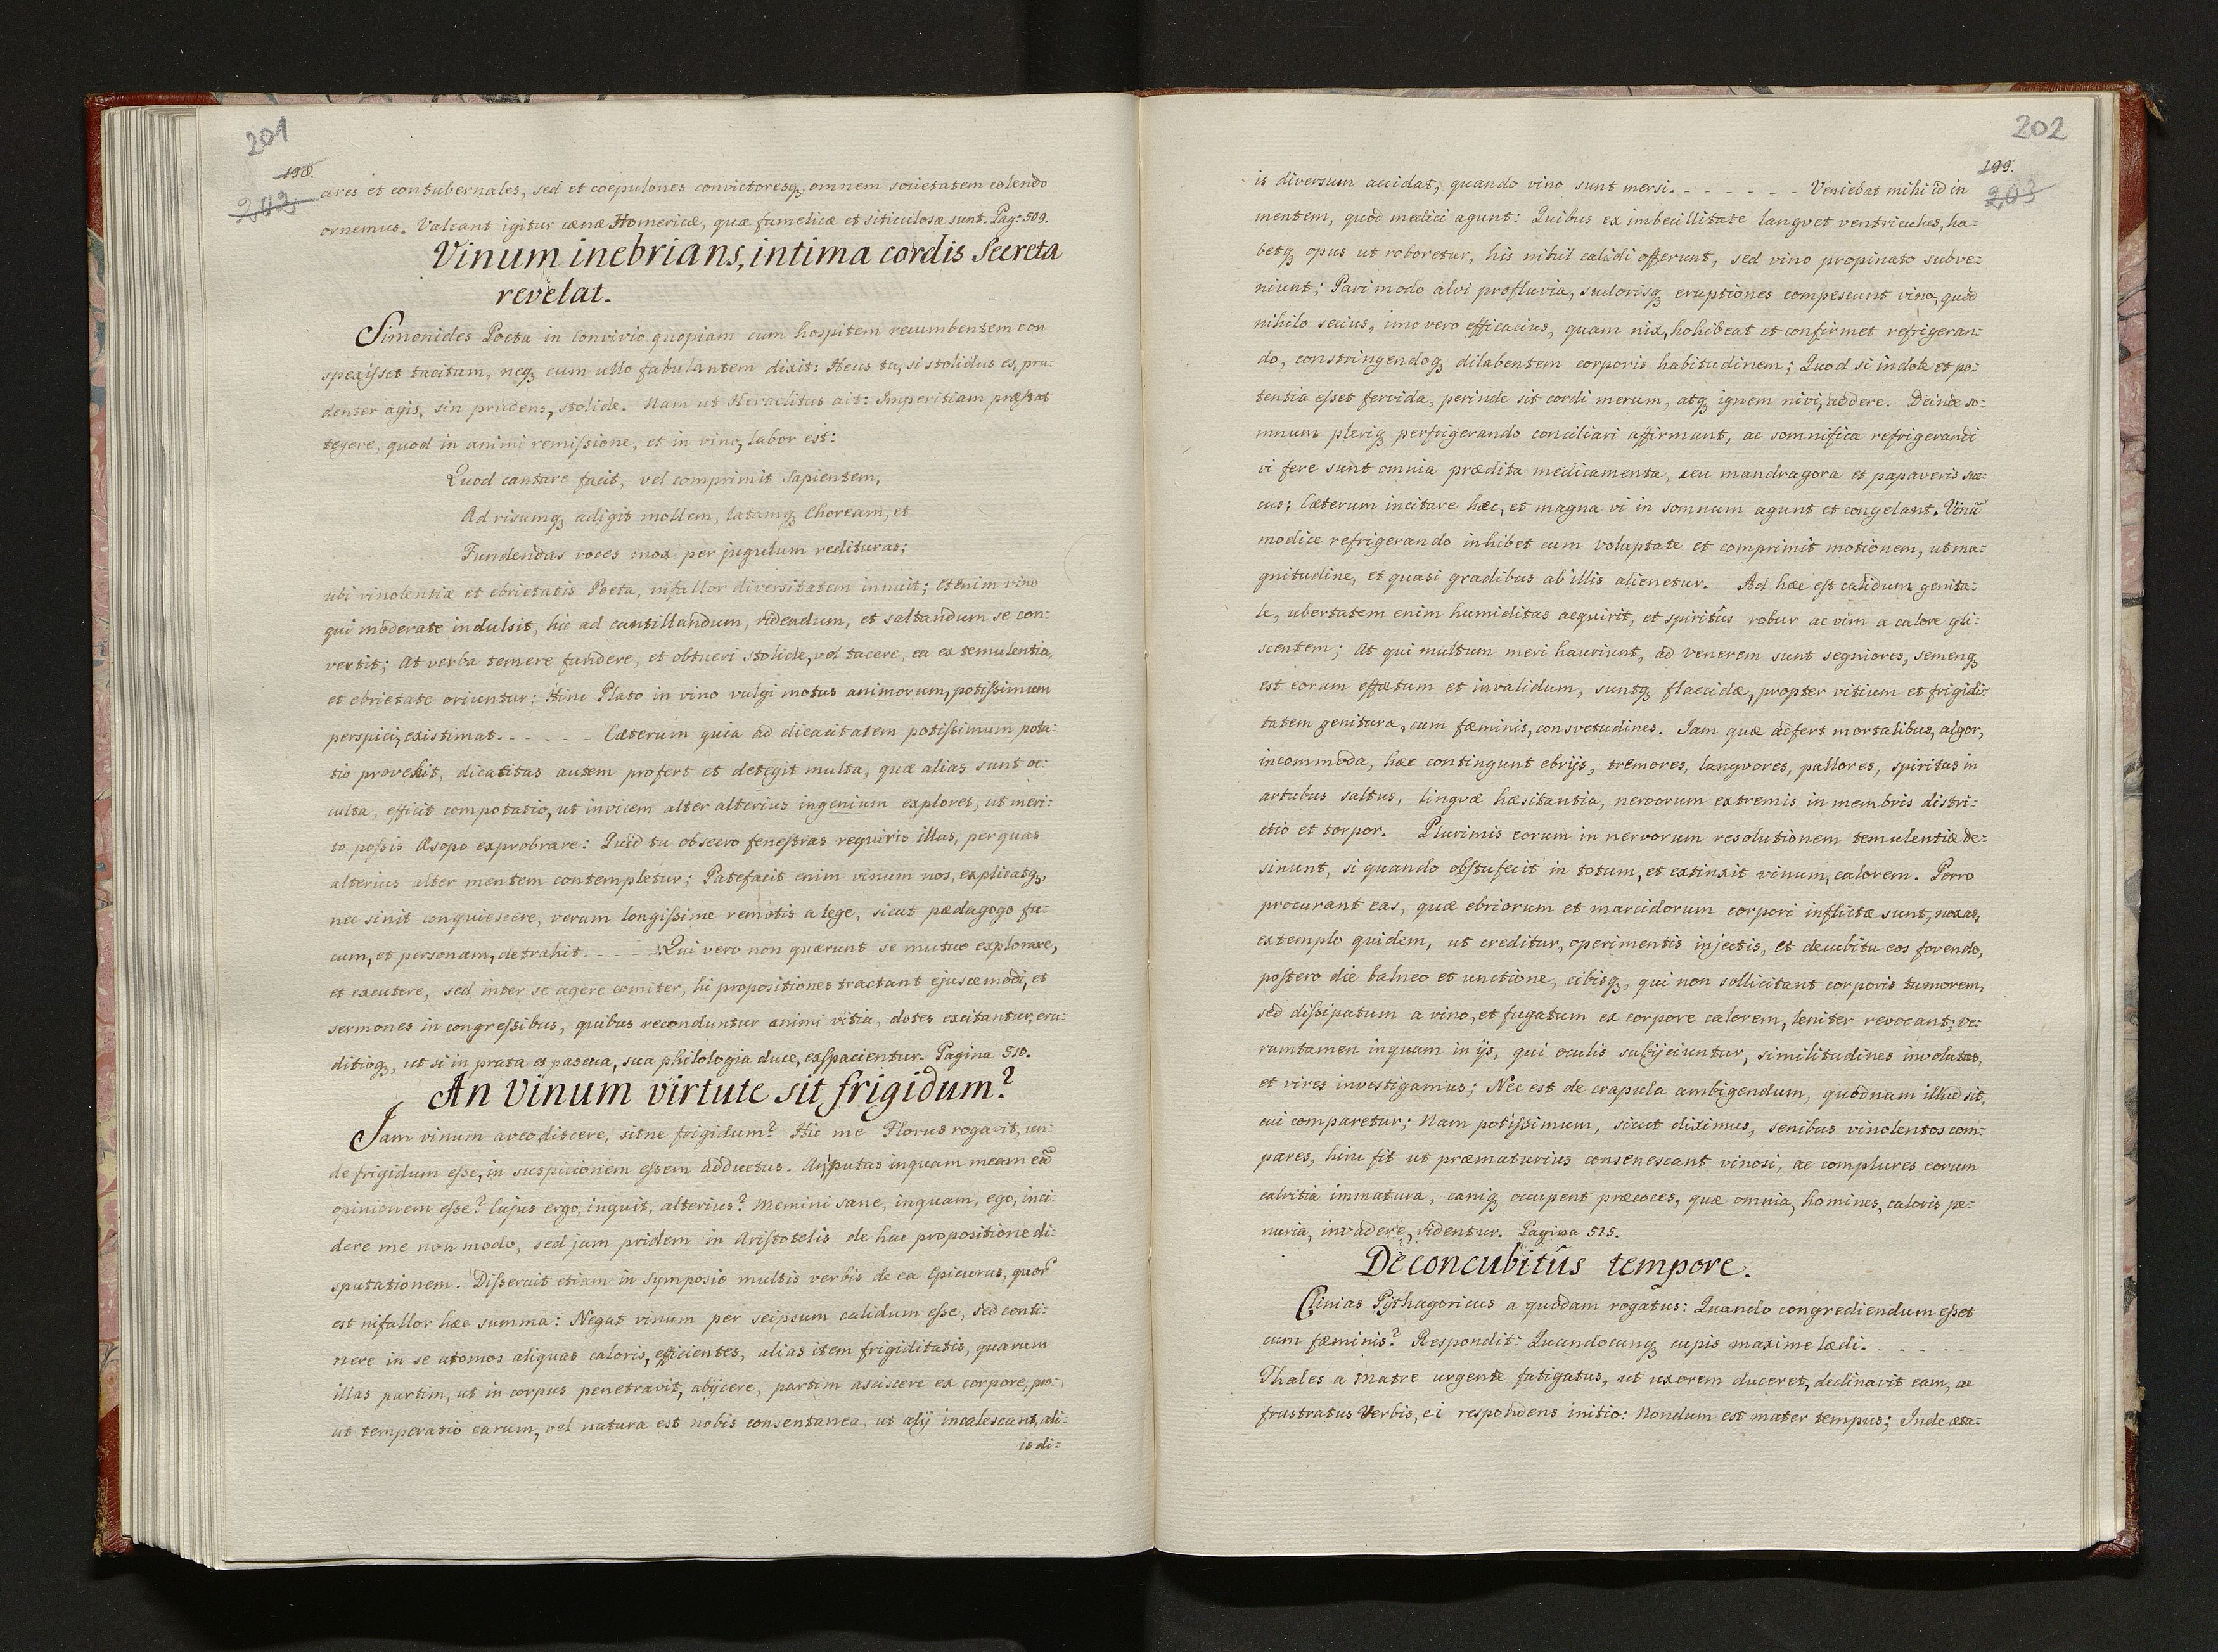 201
198.
202
ares et contubernales, sed et coepulones convictoresq, omnem societatem colendo
ornemus. Valeant igitur cænæ Homericæ, quæ famelicæ et siticulosæ sunt. Pag: 509.
Vinum inebrians, intima cordis Secreta
revelat.
Simonides Poeta in Convivio quopiam cum hospitem recumbentem con
spexisset tacitum, neq cum ullo fabulantem dixit: Heus tu, si stolidus es, pru-
denter agis, sin prudens, stolide. Nam ut Heraclitus ait: Imperitiam præstat
tegere, quod in animi remissione, et in vino, labor est:
Quod cantare facit, vel comprimit Sapientem,
Ad risumq adigit mollem, latamq Choream, et
Fundendas voces mox per jugulum redituras;
ubi vinolentiæ et ebrietatis Poeta, nifallor diversitatem innuit; Etenim vino
qui moderate indulsit, hic ad cantillandum, ridendum, et saltandum se con-
vertit; At verba temere fundere, et obtueri stolide, vel tacere, ea ex temulentia,
et ebrietate oriuntur; Hinc Plato in vino vulgi motus animorum, potissimum
perspici, existimat. - - - - - Cæterum quia ad dicacitatem potissimum pota-
tio provehit, dicatitas autem profert et detegit multa, quæ alias sunt oc-
culta, efficit compotatio, ut invicem alter alterius ingenium exploret, ut meri-
to possis Æsopo exprobrare: Quid tu obsecro fenestras requiris illas, per quas
alterius alter mentem contempletur; Patefacit enim vinum nos, explicatq,
nec sinit conquiescere, verum longissime remotis a lege, sicut pædagogo fu-
cum, et personam, detrahit. - - - - Qui vero non quærunt se mutuo explorare,
et excutere, sed inter se agere comiter, hi propositiones tractant ejuscemodi, et
sermones in congressibus, quibus reconduntur animi vitia, dotes excitantur, eru-
ditioq, ut si in prata et pascua, sua philologia duce, exspacientur. Pagina 510.
An Vinum virtute sit frigidum?
Jam vinum aveo discere, sitne frigidum? Hic me Florus rogavit, un-
de frigidum esse, in suspicionem essem adductus. An putas inquam meam eã
opinionem esse? Cujus ergo, inquit, alterius? Memini sane, inquam, ego, inci-
dere me non modo, sed jam pridem in Aristotelis de hac propositione di-
sputationem. Disseruit etiam in Symposio multis verbis de ea Epicurus, quor
est nifallor hæc summa: Negat vinum per seipsum calidum esse, sed conti-
nere in se atomos aliquas caloris, efficientes, alias item frigiditatis, quarum
illas partim, ut in corpus penetravit, abijcere, partim asciscere ex corpore, pro-
ut temperatio earum, vel natura est nobis consentanea, ut alij incalescant, ali-
is di-
202
199.
203
is diversum accidat, quando vino sunt mersi. - - - - - - - Veniebat mihi id in
mentem, quod medici agunt: Quibus ex imbecillitate langvet ventriculus, ha-
betq opus ut roboretur, his nihil calidi offerunt, sed vino propinato subve-
niunt; Pari modo alvi profluvia, sudorisq eruptiones compescunt vino, quod
nihilo secius, imo vero efficacius, quam nix, hohibeat et confirmet refrigeran-
do, constringendoq dilabentem corporis habitudinem; Quod si indole et po-
tentia esset fervida, perinde sit cordi merum, atq ignem nivi, addere. Deinde so-
mnum pleriq perfrigerando conciliari affirmant, ac somnifica refrigerandi
vi fere sunt omnia prædita medicamenta, ceu mandragora et papaveris suc-
cus; Cæterum incitare hæc, et magna vi in somnum agunt et congelant. Vinũ
modice refrigerando inhibet cum voluptate et comprimit motionem, ut ma-
gnitudine, et quasi gradibus ab illis alienetur. Ad hæc est calidum genita-
le, ubertatem enim humiditas acquirit, et spiritûs robur ac vim a calore gli-
scentem; At qui multum meri hauriunt, ad Venerem sunt segniores, semenq
est eorum effætum et invalidum, suntq flaccidæ, propter vitium et frigidi-
tatem genituræ, cum fæminis, consvetudines. Jam quæ adfert mortalibus, algor,
incommoda, hæc contingunt ebrijs, tremores, langvores, pallores, spiritus in
artubus saltus, lingvæ hæsitantia, nervorum extremis in membris distri-
ctio et torpor. Plurimis eorum in nervorum resolutionem temulentiæ de-
sinunt, si quando obstufecit in totum, et extinxit vinum, calorem. Porro
procurant eas, quæ ebriorum et marcidorum corpori inflictæ sunt, noxas,
extemplo quidem, ut creditur, operimentis injectis, et decubitu eos fovendo,
postero die balneo et unctione, cibisq, qui non sollicitant corporis tumorem,
sed dissipatum a vino, et fugatum ex corpore calorem, leniter revocant; Ve-
rumtamen inquam in ijs, qui oculis subijciuntur, similitudines involutas,
et vires investigamus; Nec est de crapula ambigendum, quodnam illud sit,
cui comparetur; Nam potissimum, sicut diximus, senibus vinolentos com-
pares, hinc fit ut præmaturius consenescant vinosi, ac complures eorum
calvitia immatura, caniq occupent præcoces, quæ omnia, homines, caloris pe-
nuria, invadere, videntur. Pagina 515.
De concubitûs tempore.
Clinias Pythagoricus a quodam rogatus: Quando congrediendum esset
cum fæminis? Respondit: Quandocunq cupis maxime lædi. - - - - -
Thales a Matre urgente fatigatus, ut uxorem duceret, declinavit eam, ac
frustratus Verbis, ei respondens initio: Nondum est mater tempus; Inde æta-